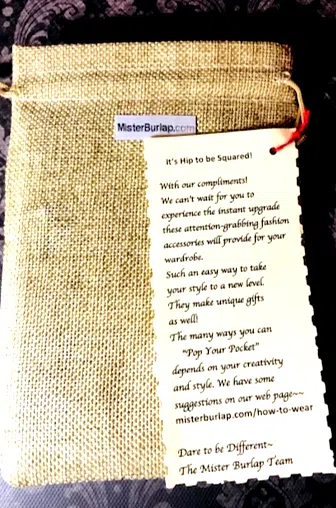 MisterBurlap.com
It's Hip to be Squared!
With our compliments!
We can't wait for you to
experience the instant upgrade
these attention-grabbing fashion
accessories will provide for your
wardrobe.
Such an easy way to take
your style to a new level.
They make unique gifts
as well!
The many ways you can
"Pop Your Pocket"
depends on your creativity
and style. We have some
suggestions on our web page~~
misterburlap.com/how-to-wear
Dare to be Different~
The Mister Burlap Team